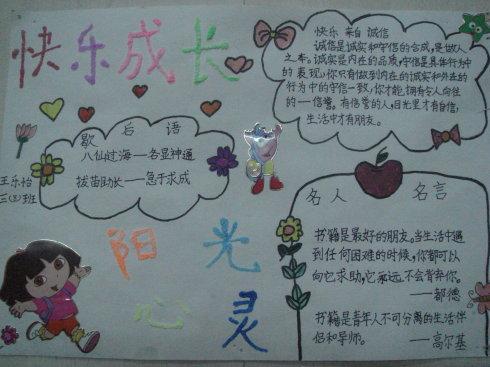 快乐成长
快乐 来自 诚信
诚信是诚实和守信的合成,是做人
之本。诚实是内在的品质,守信是具体行为中
的表现。你只有做到内在的诚实和外在的
行为中的守信一致,你才能拥有令人向往
的一一信誉。有信誉的人,目光里才有自信,
生活中才有朋友。
歇后语
八仙过海——各显神通
拔苗助长——急于求成
王乐怡
三(3)班
阳光
心灵
名人 名言
书籍是最好的朋友。当生活中遇
到任何困难的时候,你都可以
向它求助,它永远不会背弃你。
——都德
书籍是青年人不可分离的生活伴
侣和导师。 ——高尔基